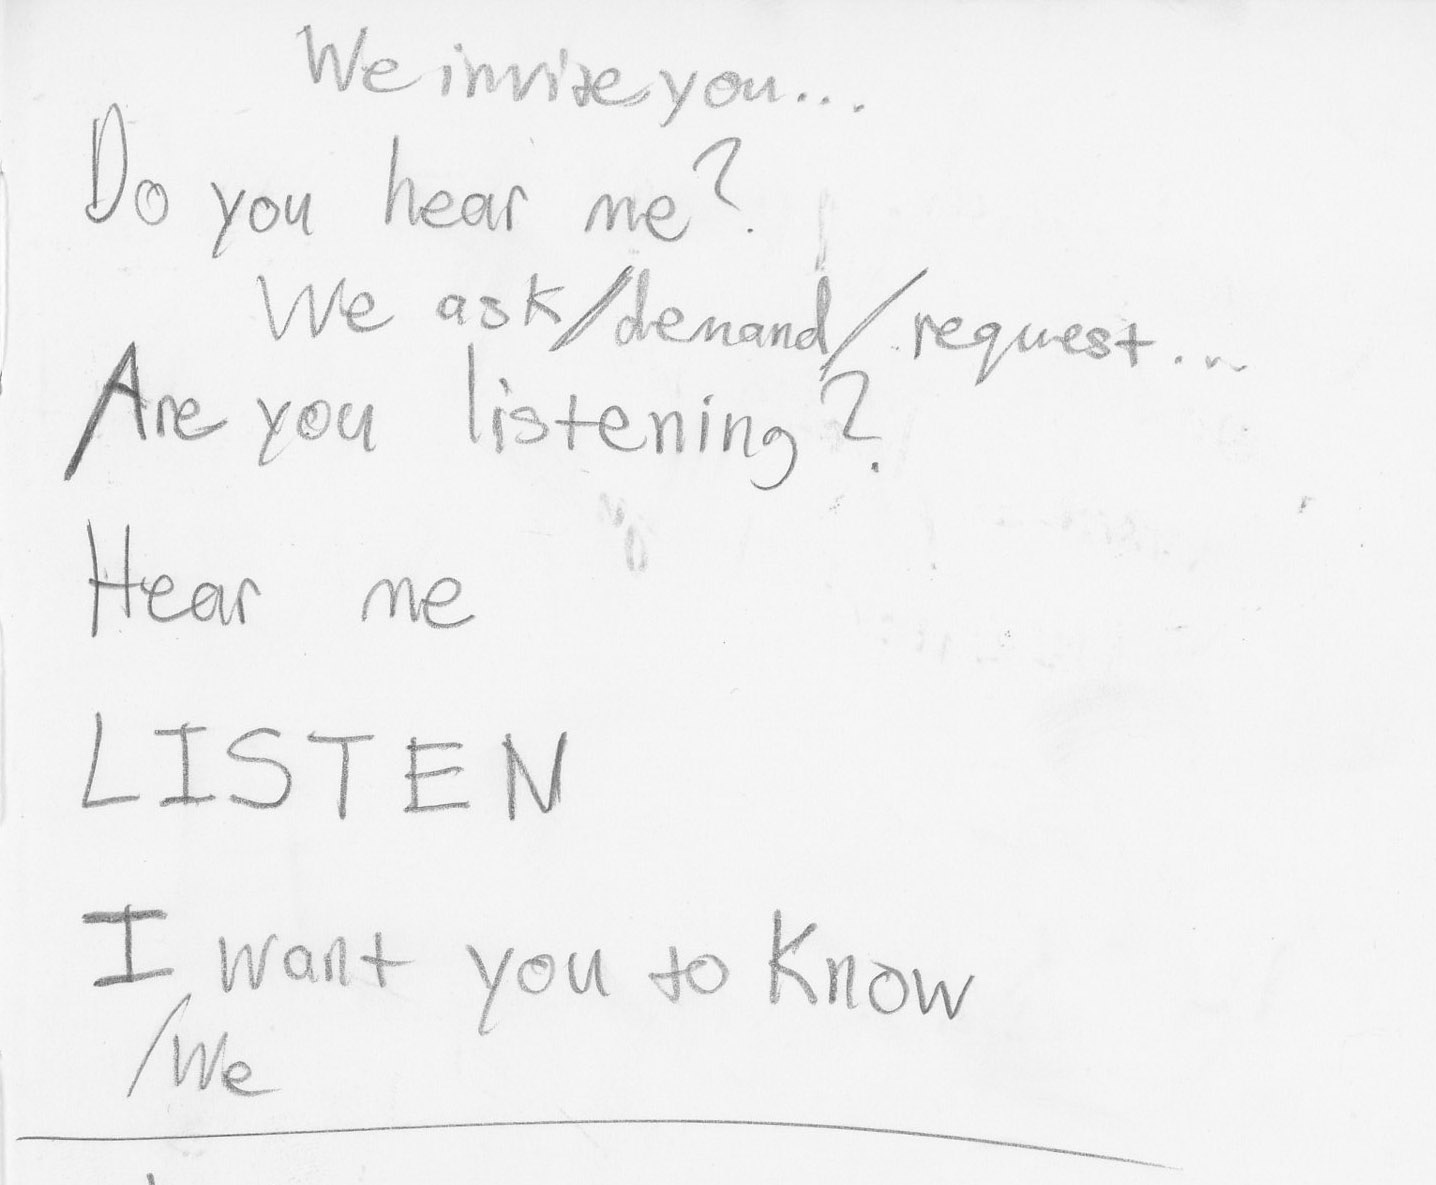 We invite you...
Do you hear me?
We ask/demand/request...
Are you listening?
Hear me
LISTEN
I want you to know
/We